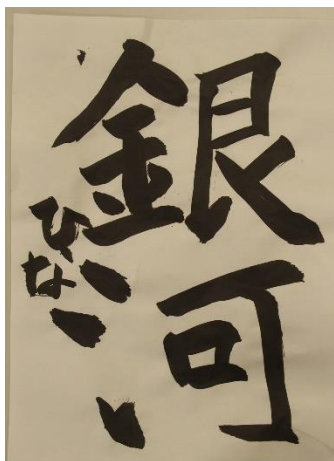 銀河
ひな